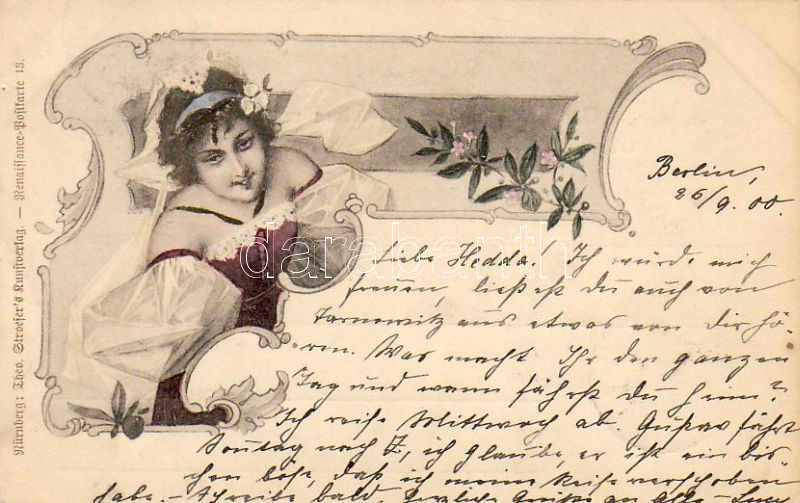 Nürnberg: Theo. Stroefer's Kunstverlag. — Renaissance-Postkarte 13.
Berlin,
26/9. 00.
Liebe Hedda! Ich würde mich
freuen, ließest du auch von
Tarnowitz aus etwas von dir hö-
ren. Was macht Ihr den ganzen
Tag und wann fährst du heim?
Ich reise Mittwoch ab. Gustav fährt
Sonntag nach Z, ich glaube, er ist ein bis-
chen böse, daß ich meine Reise verschoben
habe. — Schreibe bald. Herzliche Grüße an Alle —
darabanth